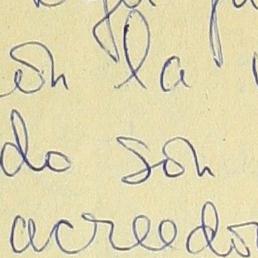 ón la
do son
acreedor